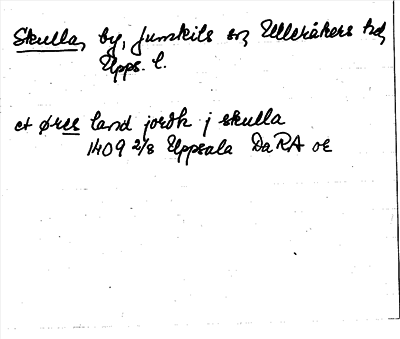 Skulla, by, Jumkils sn, Ulleråkers hd,
Upps. l.
et øres land jordh j skulla
1409 2/8 Uppsala DaRA or